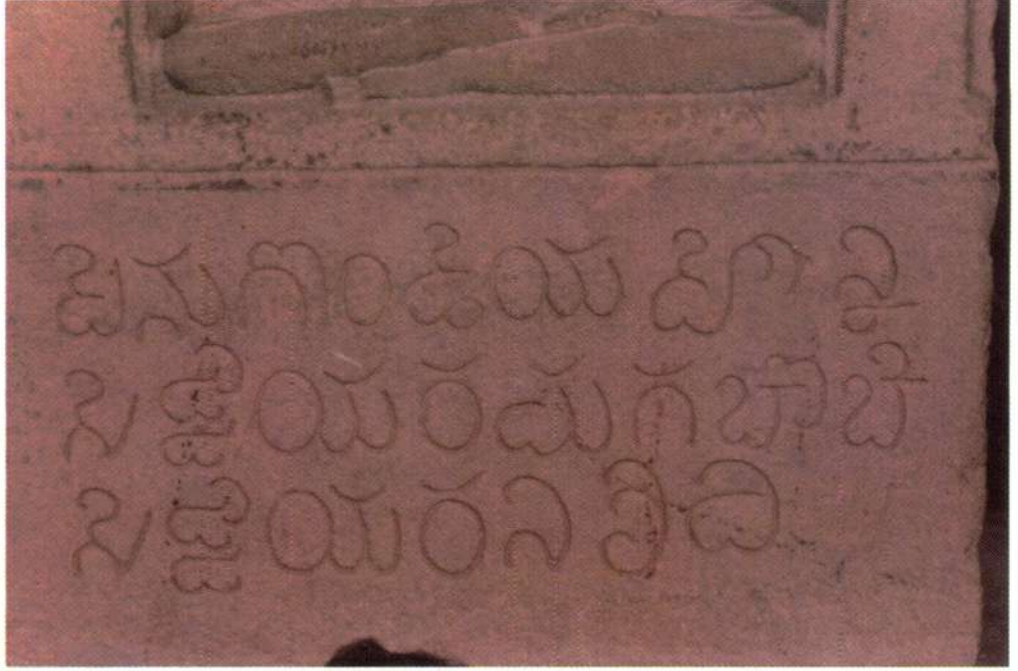 ಪೆನುಗೊಂಡೆಯ ಹೊನ್ನಿ
ಸೆಟ್ಟಿಯರ ಮಗ ಬೊಬೆ
ಸೆಟ್ಟಿಯರ ನಿಶಿದಿ